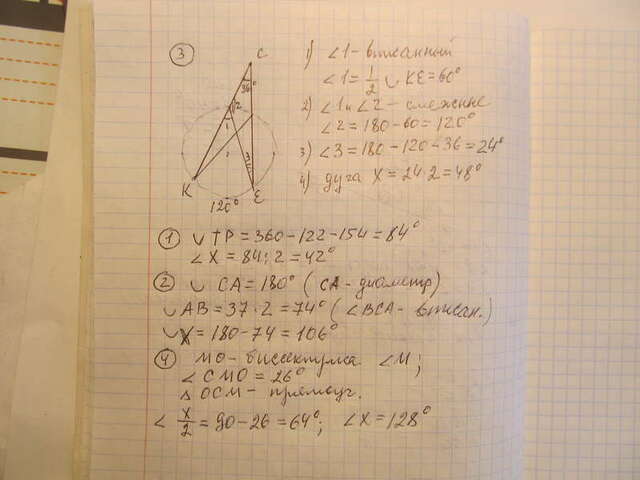 ③
C
36°
2
1
3
K
E
120°
1) ∠1 - вписанный
∠1 = 1/2 ∪ KE = 60°
2) ∠1 и ∠2 - смежные
∠2 = 180 - 60 = 120°
3) ∠3 = 180 - 120 - 36 = 24°
4) дуга X = 24·2 = 48°
① ∪ TP = 360 - 122 - 154 = 84°
∠X = 84:2 = 42°
② ∪ CA = 180° (CA - диаметр)
∪ AB = 37·2 = 74° (∠BCA - вписан.)
∪ X = 180 - 74 = 106°
④ MO - биссектриса ∠M;
∠CMO = 26°
△ OCM - прямоуг.
∠ X/2 = 90 - 26 = 64°; ∠X = 128°